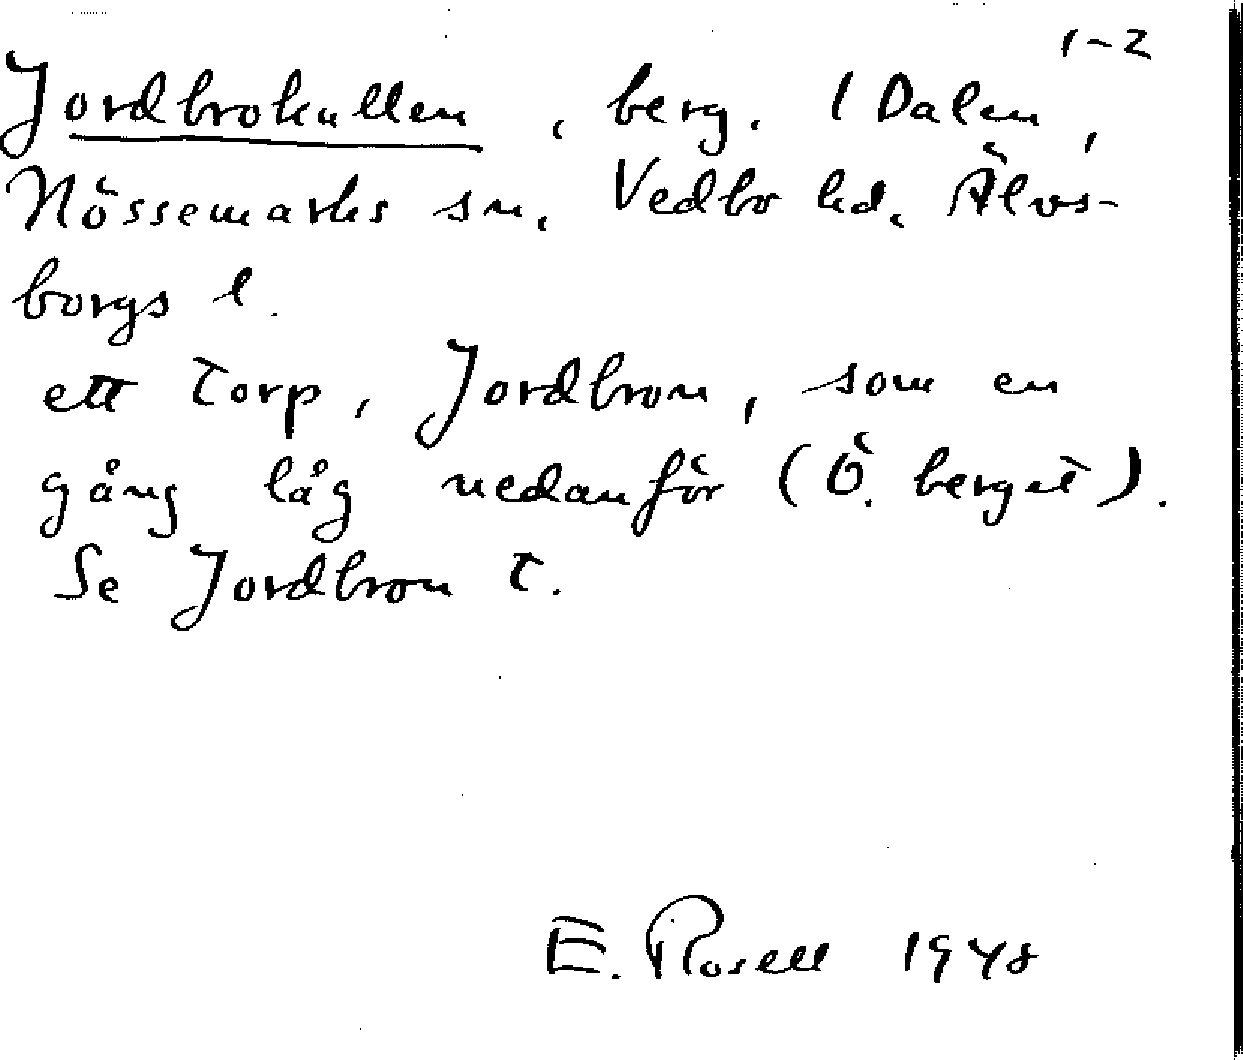 1-2
Jordbrokullen, berg. 1 Dalen,
Nössemarks sn. Vedbo hd. Älvs-
borgs l.
ett torp, Jordbron, som en
gång låg nedanför (Ö. berget).
Se Jordbron t.
E. Rosell 1948